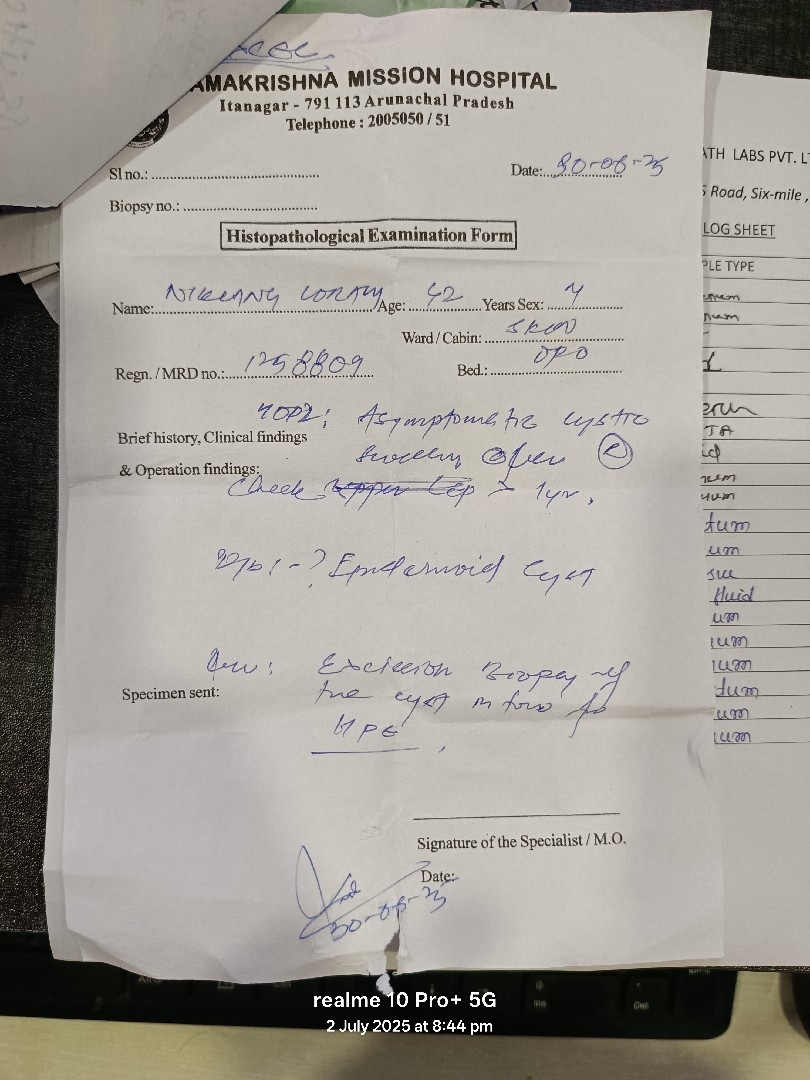 AMAKRISHNA MISSION HOSPITAL
Itanagar - 791 113 Arunachal Pradesh
Telephone : 2005050 / 51
Sl no.:
Date: 30-06-25
Biopsy no.:
Histopathological Examination Form
Name: Age: 42 Years Sex:
Ward / Cabin: SKIN
Regn. / MRD no.: 1258809 Bed.: OPD
Asymptomatic cystic
Brief history, Clinical findings
swelling over
& Operation findings:
Cheek > 1yr,
? Epidermoid Cyst
Adv: Excision Biopsy of
Specimen sent: the cyst in toto for
HPE
Signature of the Specialist / M.O.
Date:
30-06-25
ATH LABS PVT. LT
S Road, Six-mile ,
LOG SHEET
PLE TYPE
tum
um
fluid
um
ium
ium
tum
um
ium
realme 10 Pro+ 5G
2 July 2025 at 8:44 pm